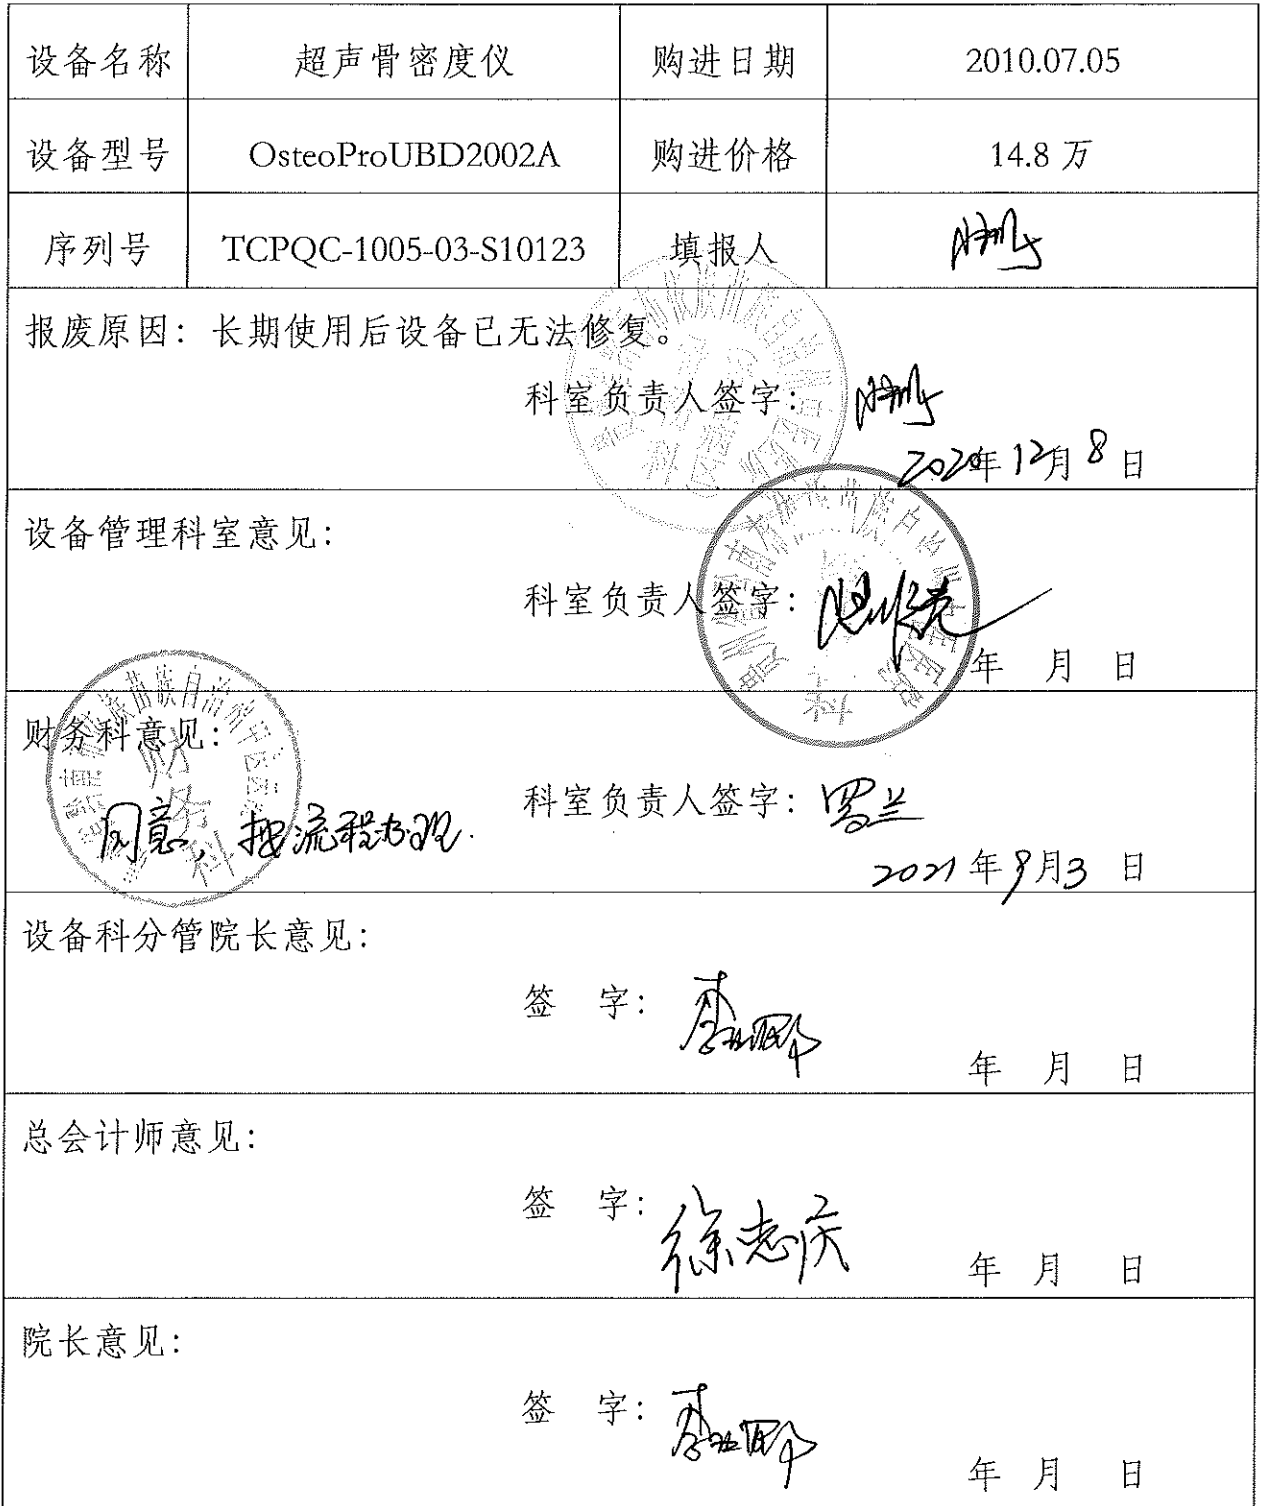 设备名称 超声骨密度仪 购进日期 2010.07.05
设备型号 OsteoProUBD2002A 购进价格 14.8 万
序列号 TCPQC-1005-03-S10123 填报人
报废原因：长期使用后设备已无法修复。
科室负责人签字：
2020年12月8日
设备管理科室意见：
科室负责人签字：
年 月 日
财务科意见：
科室负责人签字：罗兰
同意，按流程办理.
2021年9月3日
设备科分管院长意见：
签 字：
年 月 日
总会计师意见：
签 字：徐志庆
年 月 日
院长意见：
签 字：
年 月 日